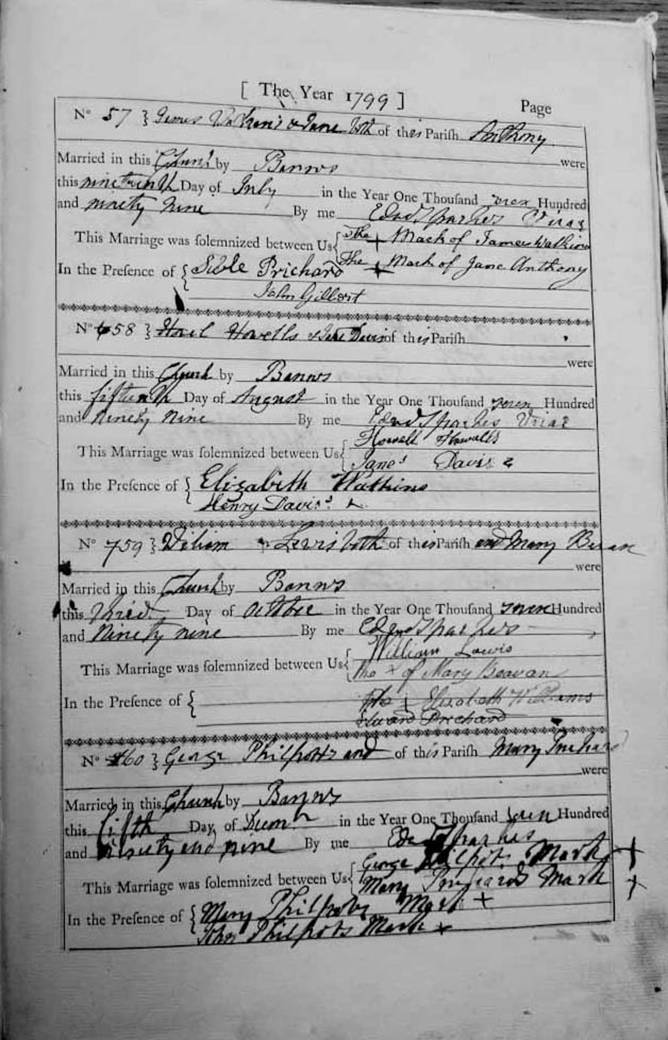 [ The Year 1799 ]
Page
No 57 } James & Jane both of this Parish Anthony
were
Married in this Church by Banns
this nineteenth Day of July in the Year One Thousand Hundred
and ninety nine By me Edwd Sparkes Vicar
This Marriage was solemnized between Us { The + Mark of James Watkins
The + Mark of Jane Anthony
In the Presence of { Sible Prichard
John Gillbert
No 58 } Howells & Jane Davis of this Parish
were
Married in this Church by Banns
this fifteenth Day of August in the Year One Thousand seven Hundred
and ninety nine By me Edwd Sparkes Vicar
Howell Howells
This Marriage was solemnized between Us { Jane Davis
In the Presence of { Elizabeth Watkins
Henry Davis
No 759 } Lewis both of this Parish and Mary
were
Married in this Church by Banns
this third Day of October in the Year One Thousand seven Hundred
and Ninety nine By me Edwd Sparkes
William Lewis
This Marriage was solemnized between Us { the x of Mary Beavan
In the Presence of { The Elizabeth Williams
Edward Prichard
No 60 } George Philpotts and of this Parish Mary
were
Married in this Church by Banns
this fifth Day of in the Year One Thousand seven Hundred
and nine By me Sparkes
George Philpots Mark +
This Marriage was solemnized between Us { Mary Mark +
In the Presence of { Mary Philpots Mark +
John Philpots Mark x